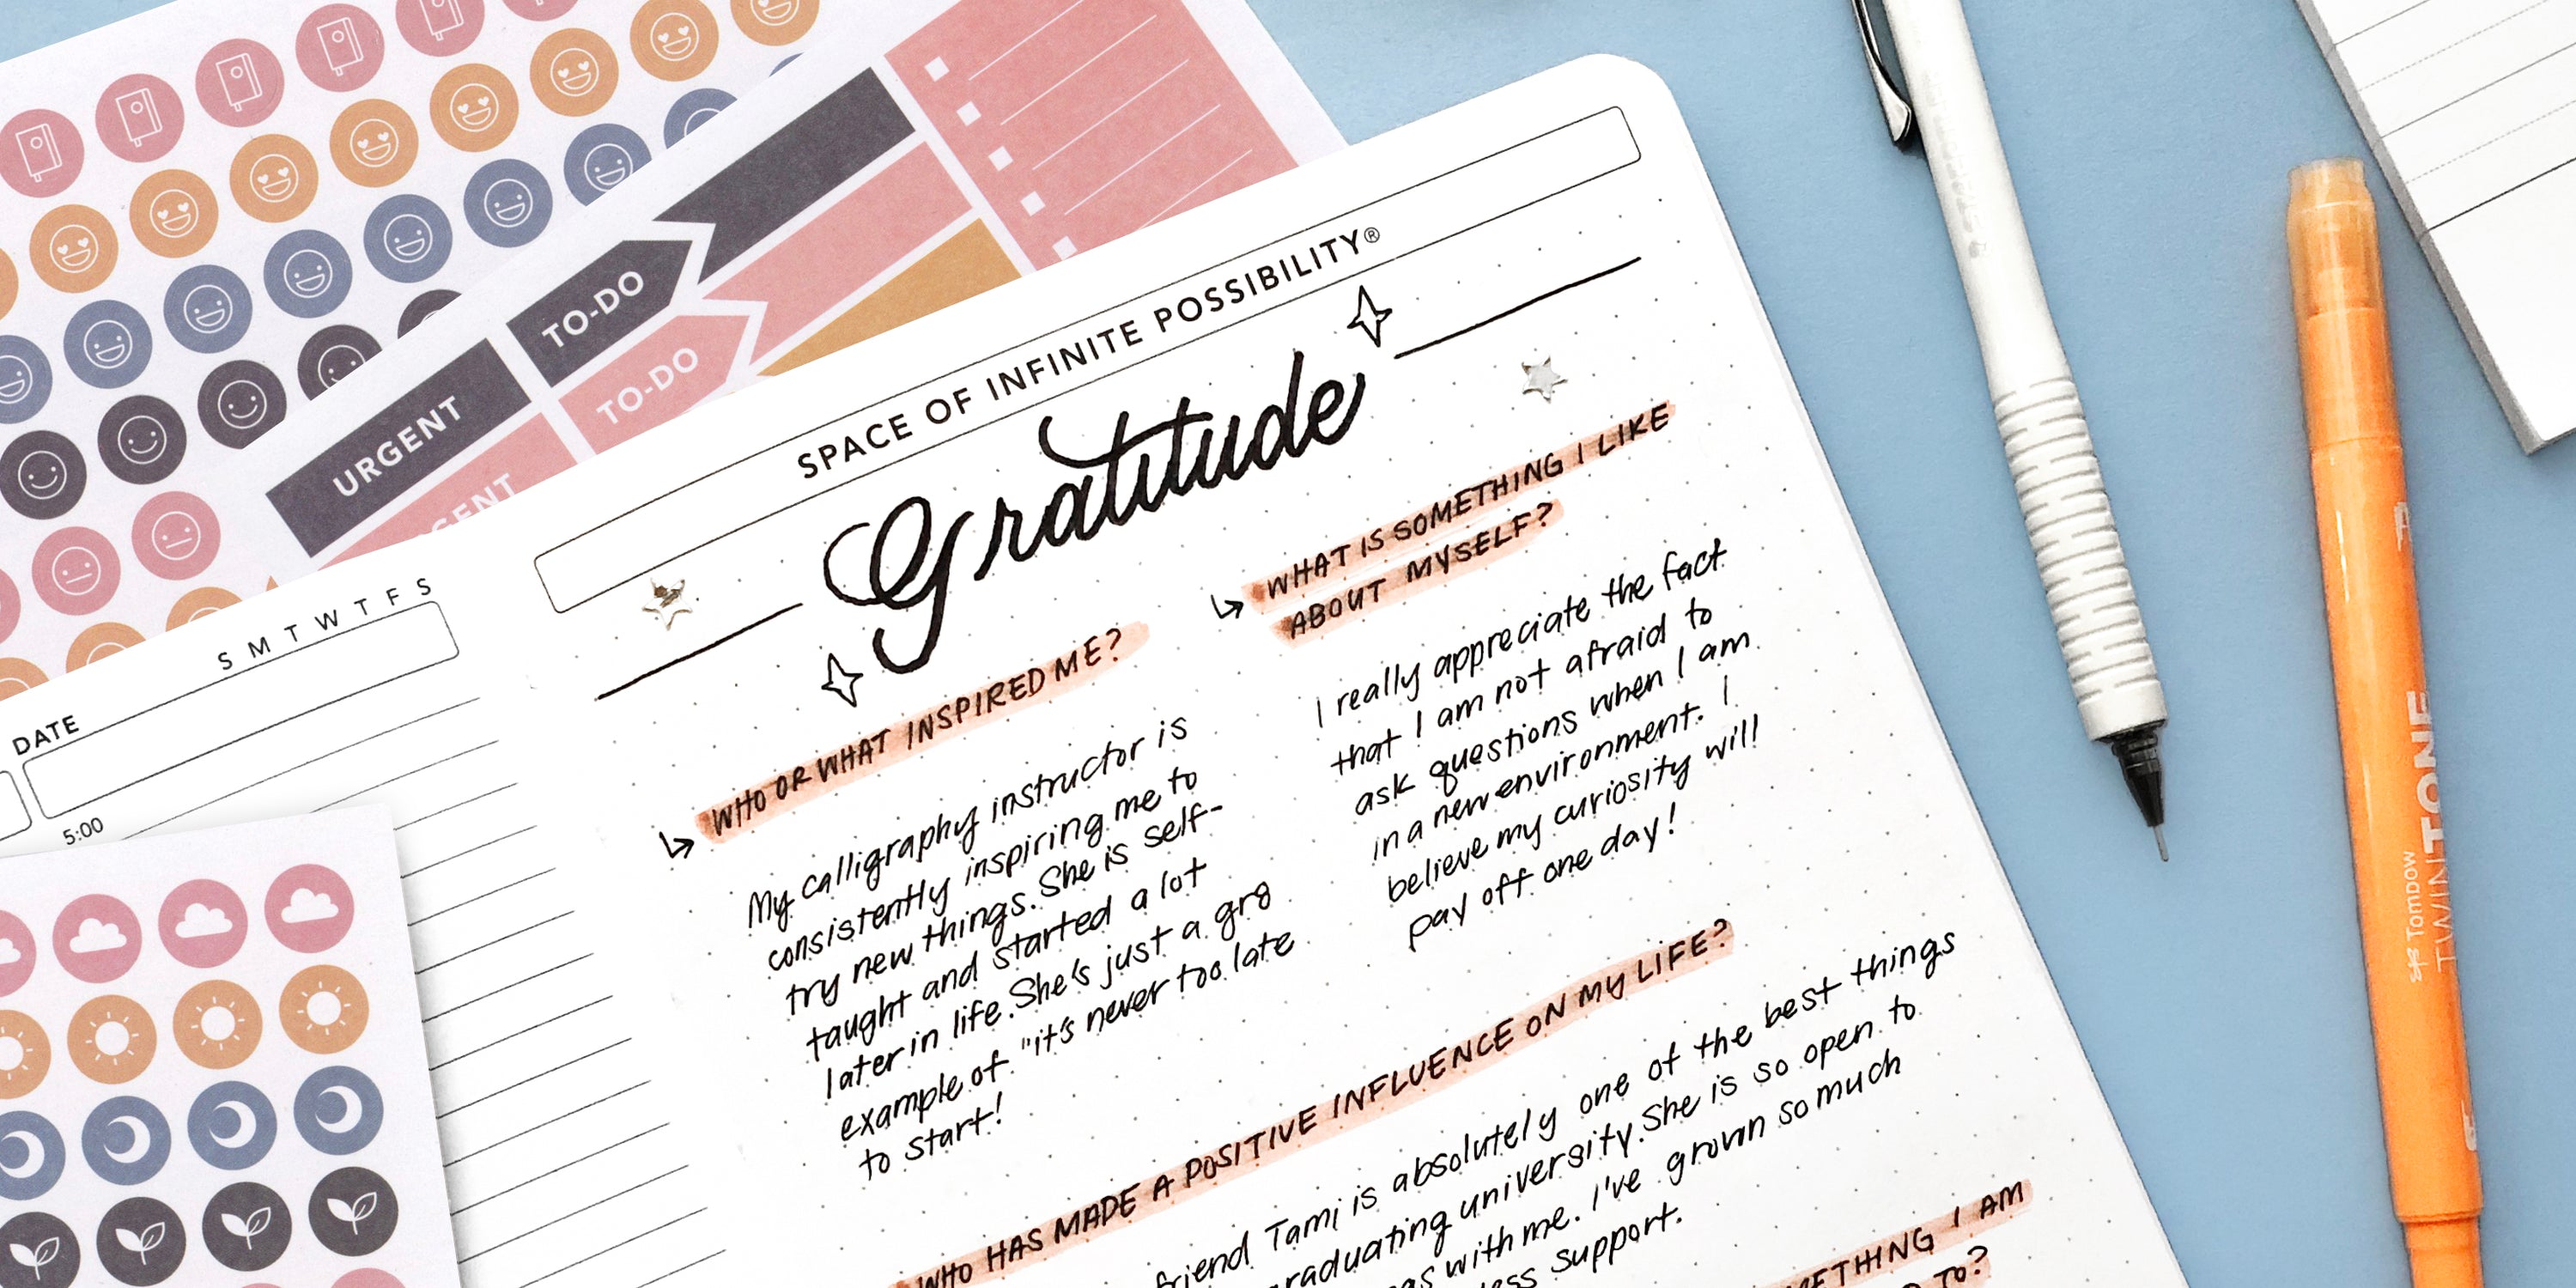 URGENT
TO-DO
TO-DO
GENT
S M T W T F S
DATE
5:00
SPACE OF INFINITE POSSIBILITY®
Gratitude
WHO OR WHAT INSPIRED ME?
My calligraphy instructor is
consistently inspiring me to
try new things. She is self-
taught and started a lot
later in life. She's just a gr8
example of "it's never too late
to start!
WHAT IS SOMETHING I LIKE
ABOUT MYSELF?
I really appreciate the fact
that I am not afraid to
ask questions when I am
in a new environment. I
believe my curiosity will
pay off one day!
WHO HAS MADE A POSITIVE INFLUENCE ON MY LIFE?
friend Tami is absolutely one of the best things
graduating university. She is so open to
with me. I've grown so much
support.
ETHING I AM
TO?
Tombow
TWINTONE